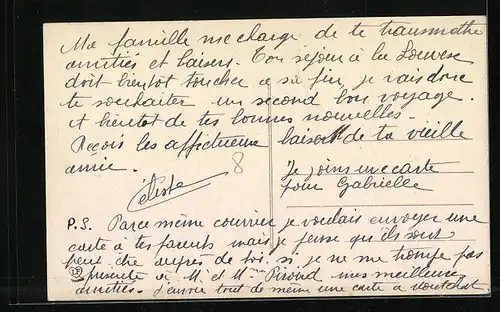 Ma famille me charge de te transmettre
amitiés et baisers. Ton séjour à la Louvesc
doit bientot toucher a sa fin, je vais donc
te souhaiter un second bon voyage.
et bientot de tes bonnes nouvelles.
Reçois les affectueux baisers de ta vieille
amie.
Céleste
8
Je joins une carte
pour Gabrielle
P.S. Par ce même courrier je voulais envoyer une
carte à tes parents mais je pense qu'ils sont
peut être auprès de toi. si je ne me trompe pas
présente a M. et Mme mes meilleures
amitiés. J'envoie tout de même une carte à Montchat.